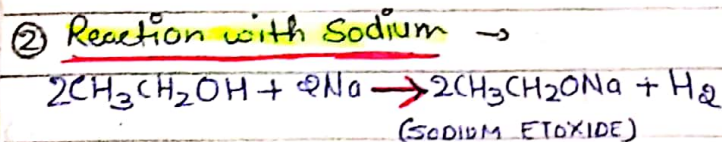 ② Reaction with Sodium →
2CH₃CH₂OH + 2Na → 2CH₃CH₂ONa + H₂
(SODIUM ETOXIDE)